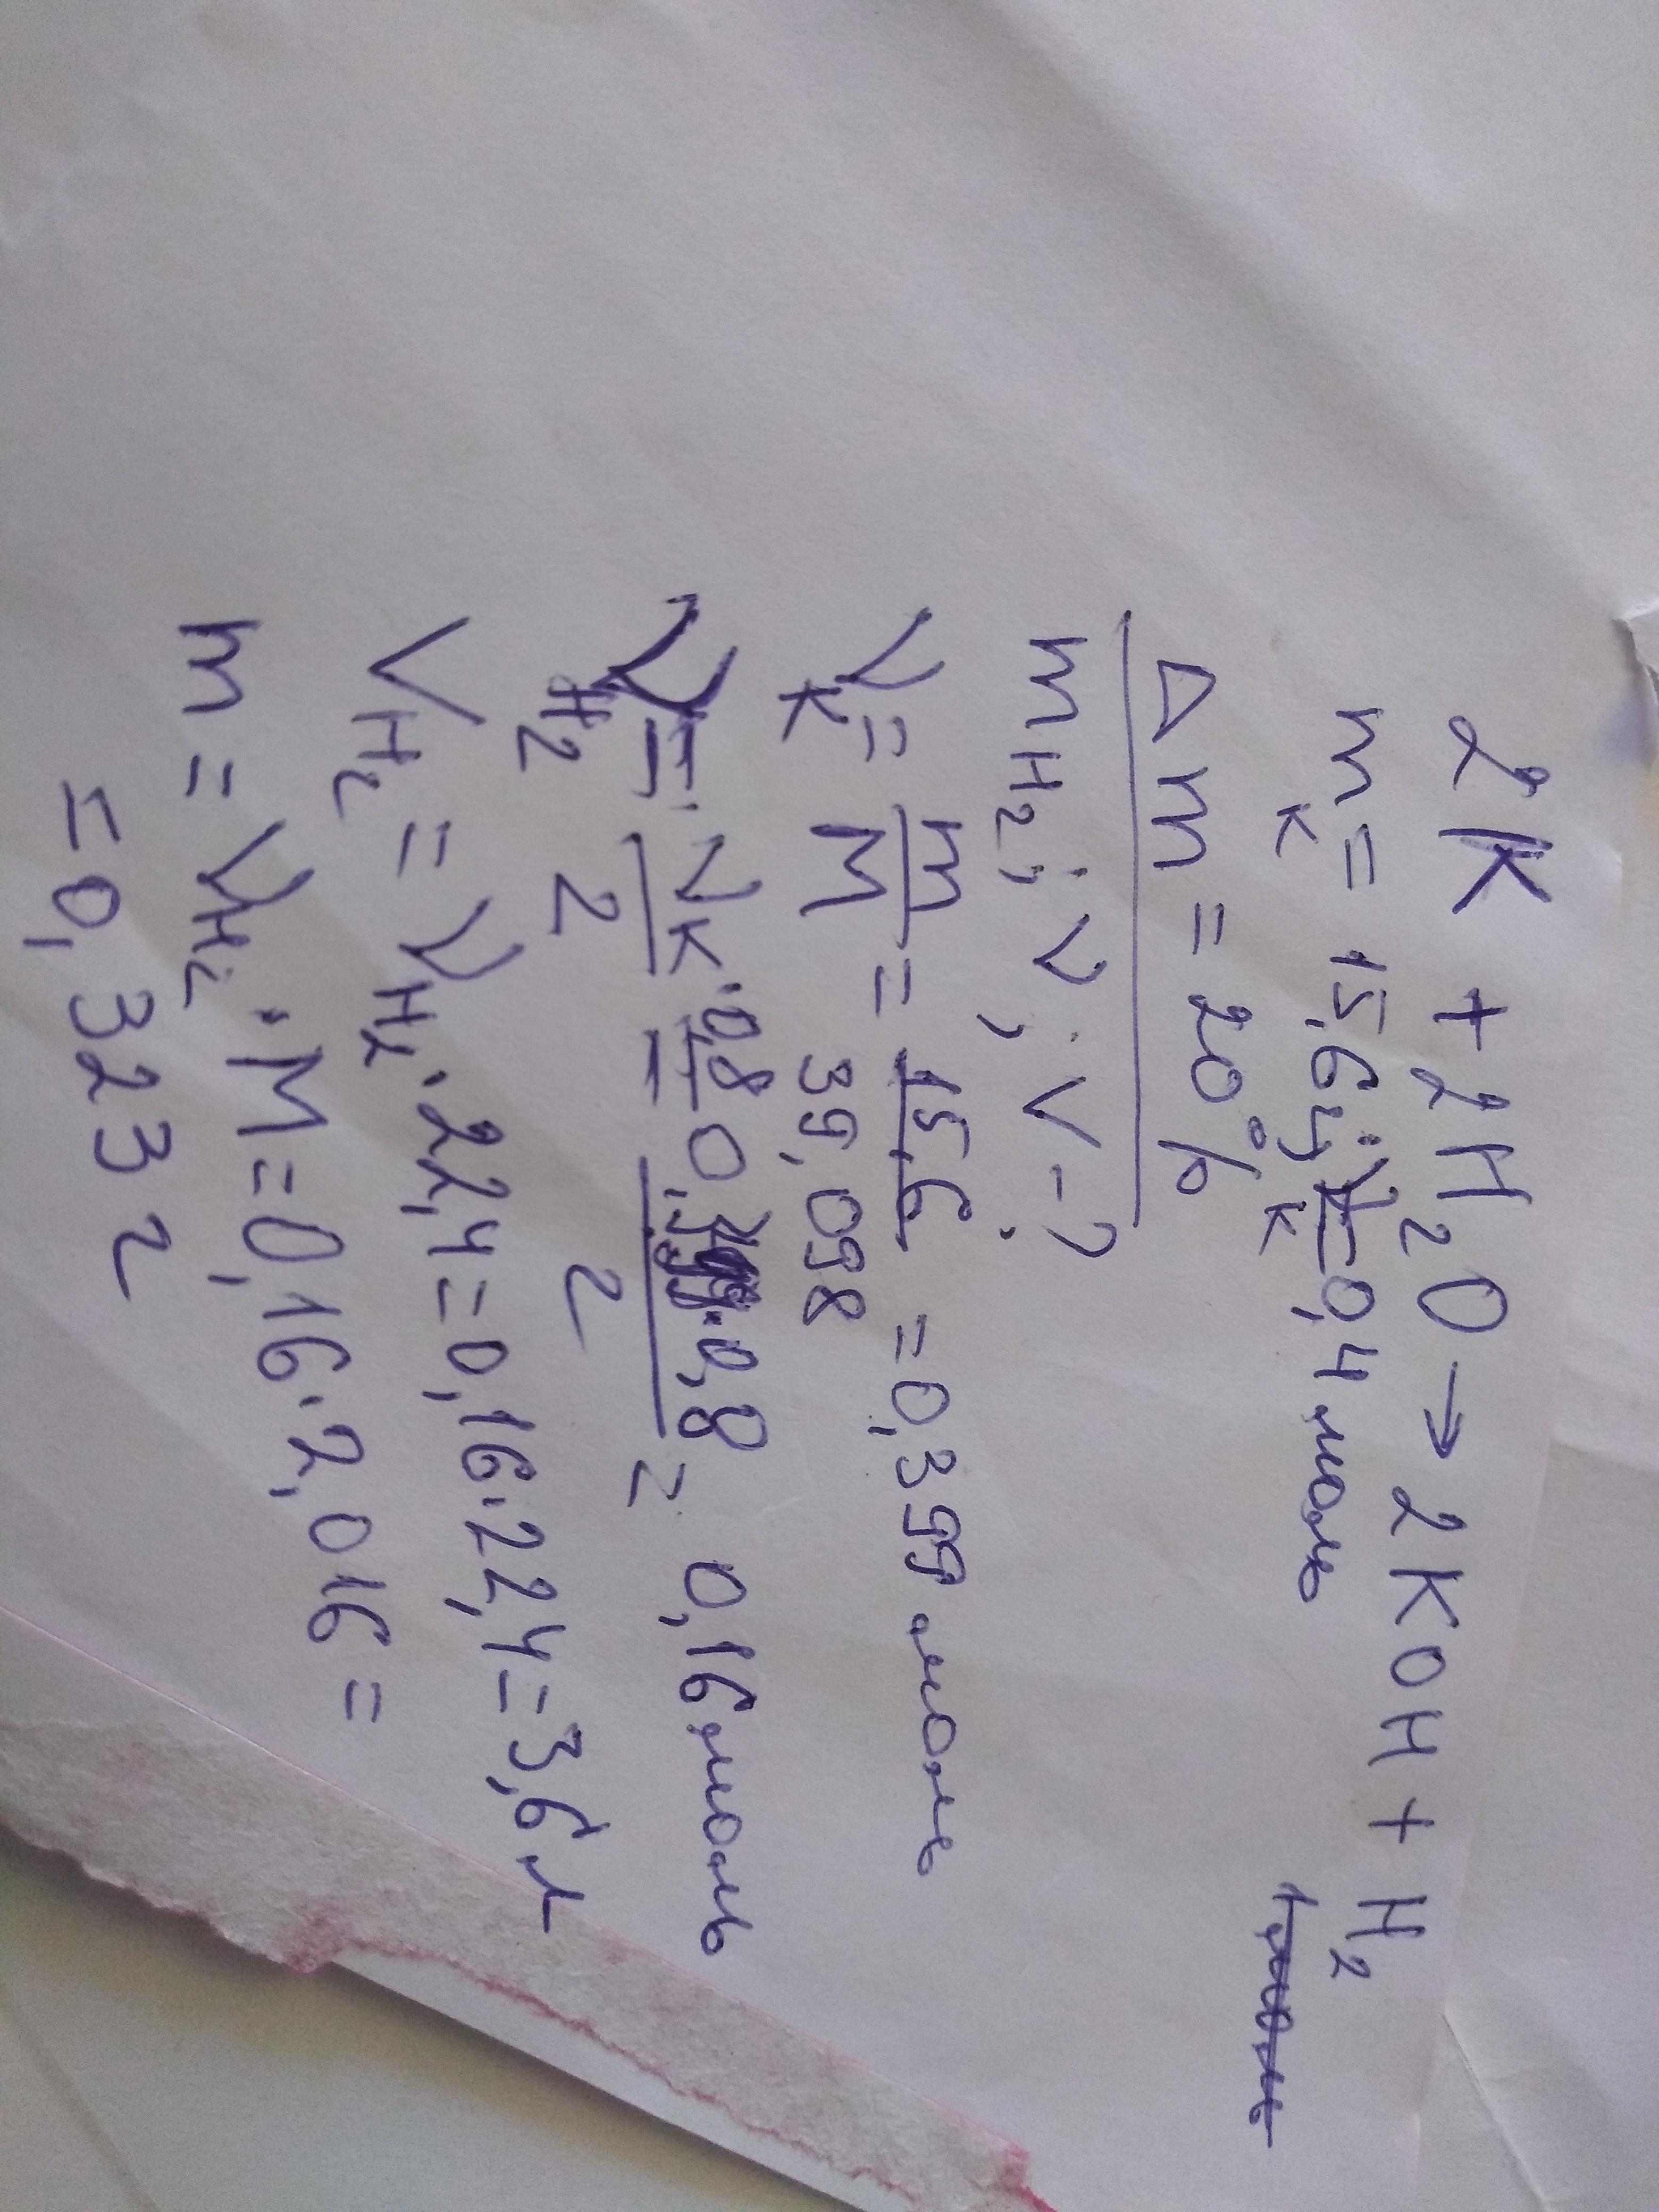 2K + 2H₂O → 2KOH + H₂
m_K = 15,6 г; ν_K = 0,4 моль
Δm = 20%
m_H₂; ν; V - ?
ν_K = m/M = 15,6/39,098 = 0,399 моль
ν_H₂ = ν_K · 0,8/2 = 0,399 · 0,8/2 = 0,16 моль
V_H₂ = ν_H₂ · 22,4 = 0,16 · 22,4 = 3,6 л
m = ν_H₂ · M = 0,16 · 2,016 =
= 0,323 г